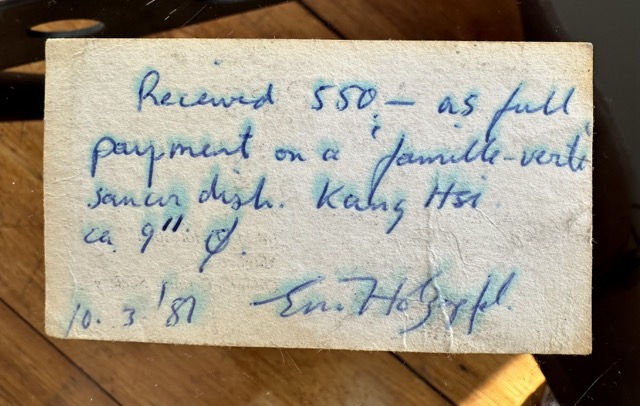 Received 550,— as full
payment on a famille-verte
saucer dish. Kang Hsi.
ca 9" Ø.
10. 3. '81 Holzapfel.